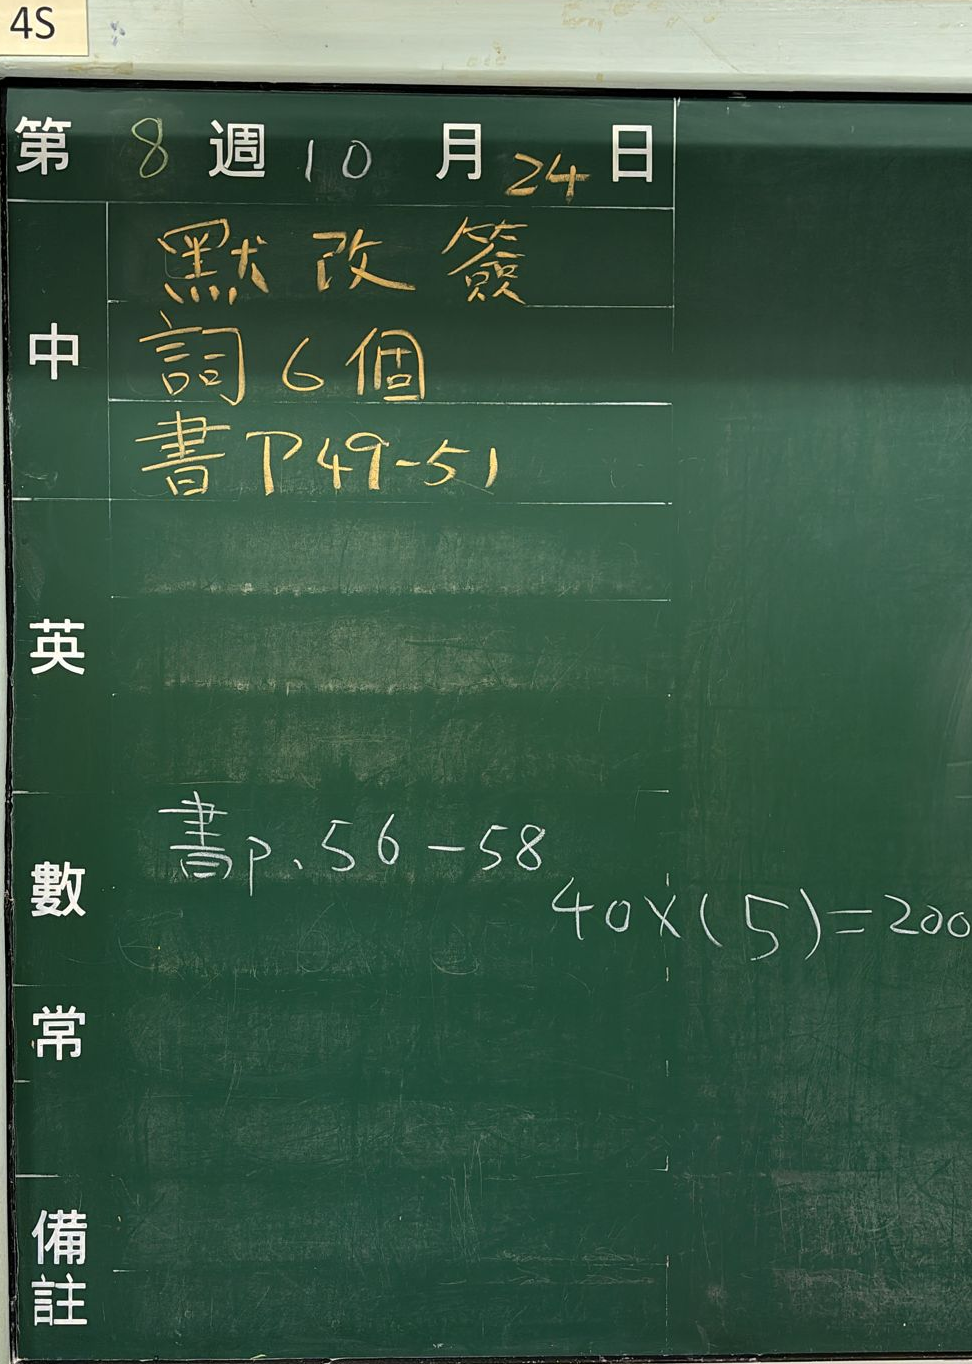 4S
第 8 週 10 月 24 日
中
默改簽
詞6個
書P49-51
英
數
書p.56-58
40×(5)=200
常
備註